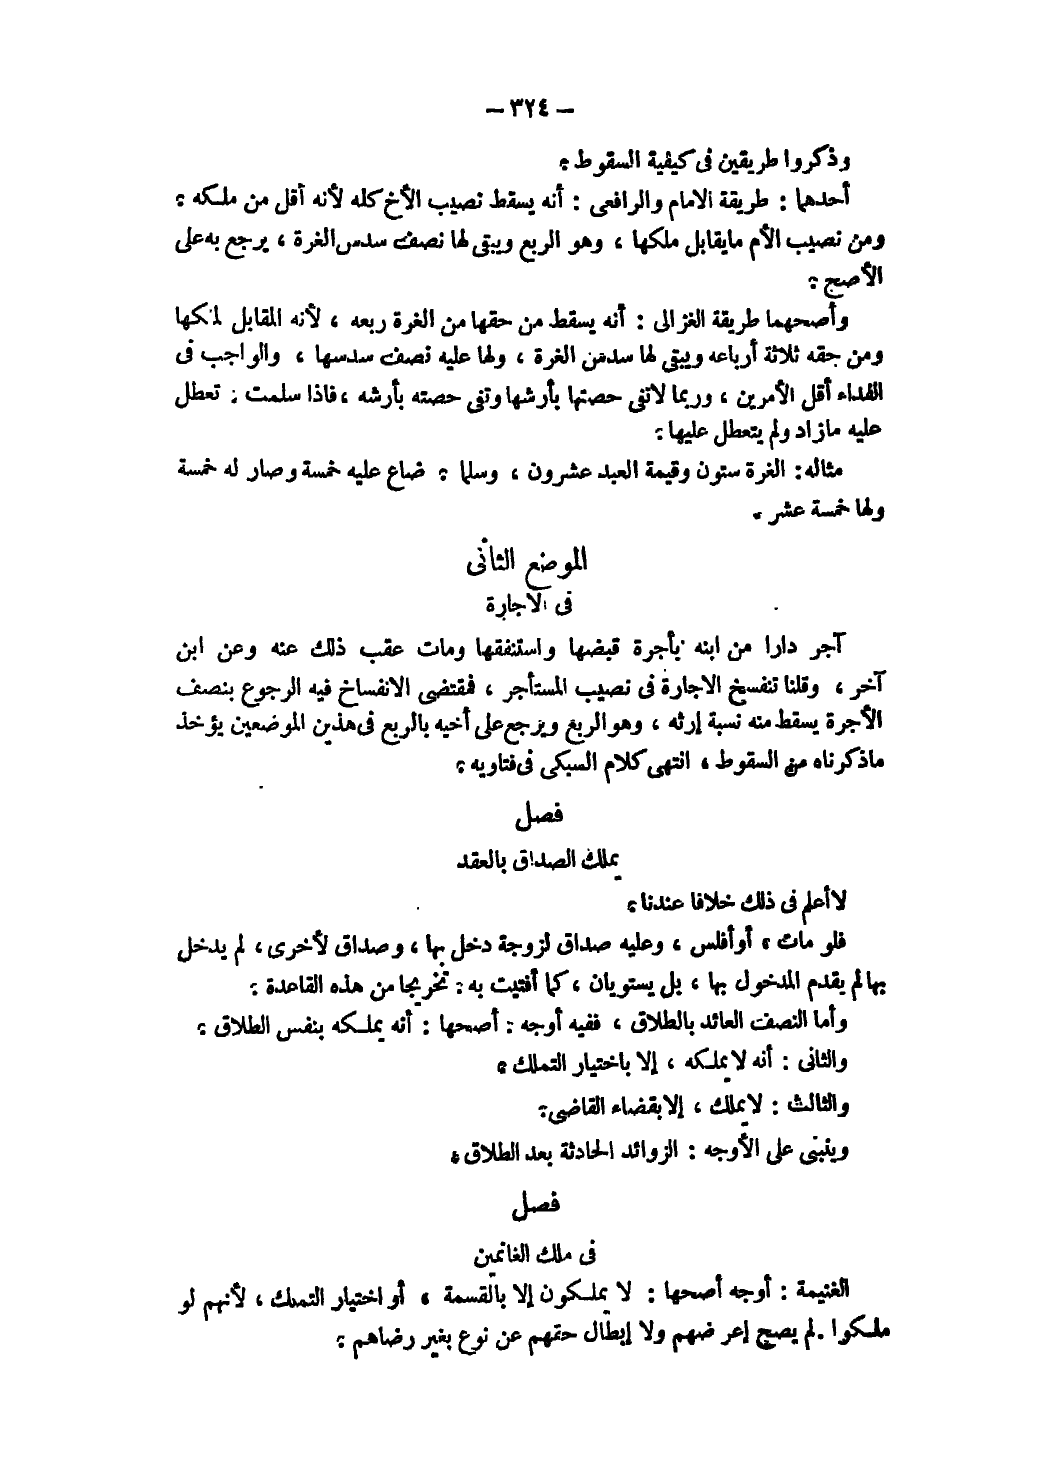 — ٣٢٤ —
وذكروا طريقين فى كيفية السقوط ؛
أحدهما : طريقة الامام والرافعى : أنه يسقط نصيب الأخ كله لأنه أقل من ملكه ؛
ومن نصيب الأم مايقابل ملكها ، وهو الربع ويبقى لها نصف سدس الغرة ، يرجع به على
الأصح ؛
وأصحهما طريقة الغزالى : أنه يسقط من حقها من الغرة ربعه ، لأنه المقابل لملكها
ومن حقه ثلاثة أرباعه ويبقى لها سدس الغرة ، ولها عليه نصف سدسها ، والواجب فى
الفداء أقل الأمرين ، وربما لاتفى حصتها بأرشها وتفى حصته بأرشه ، فاذا سلمت : تعطل
عليه مازاد ولم يتعطل عليها ؛
مثاله : الغرة ستون وقيمة العبد عشرون ، وسلما ؛ ضاع عليه خمسة وصار له خمسة
ولها خمسة عشر .
الموضع الثانى
فى الاجارة
آجر دارا من ابنه بأجرة قبضها واستنفقها ومات عقب ذلك عنه وعن ابن
آخر ، وقلنا تنفسخ الاجارة فى نصيب المستأجر ، فمقتضى الانفساخ فيه الرجوع بنصف
الأجرة يسقط منه نسبة إرثه ، وهو الربع ويرجع على أخيه بالربع فى هذين الموضعين يؤخذ
ماذكرناه من السقوط ، انتهى كلام السبكى فى فتاويه ؛
فصل
يملك الصداق بالعقد
لاأعلم فى ذلك خلافا عندنا ؛
فلو مات ، أوأفلس ، وعليه صداق لزوجة دخل بها ، وصداق لأخرى ، لم يدخل
بها لم يقدم المدخول بها ، بل يستويان ، كما أفتيت به : تخريجا من هذه القاعدة ؛
وأما النصف العائد بالطلاق ، ففيه أوجه : أصحها : أنه يملكه بنفس الطلاق ؛
والثانى : أنه لا يملكه ، إلا باختيار التملك ؛
والثالث : لايملك ، إلا بقضاء القاضى ؛
وينبنى على الأوجه : الزوائد الحادثة بعد الطلاق ؛
فصل
فى ملك الغانمين
الغنيمة : أوجه أصحها : لا يملكون إلا بالقسمة ، أو اختيار التملك ، لأنهم لو
ملكوا . لم يصح إعر ضهم ولا إبطال حقهم عن نوع بغير رضاهم ؛